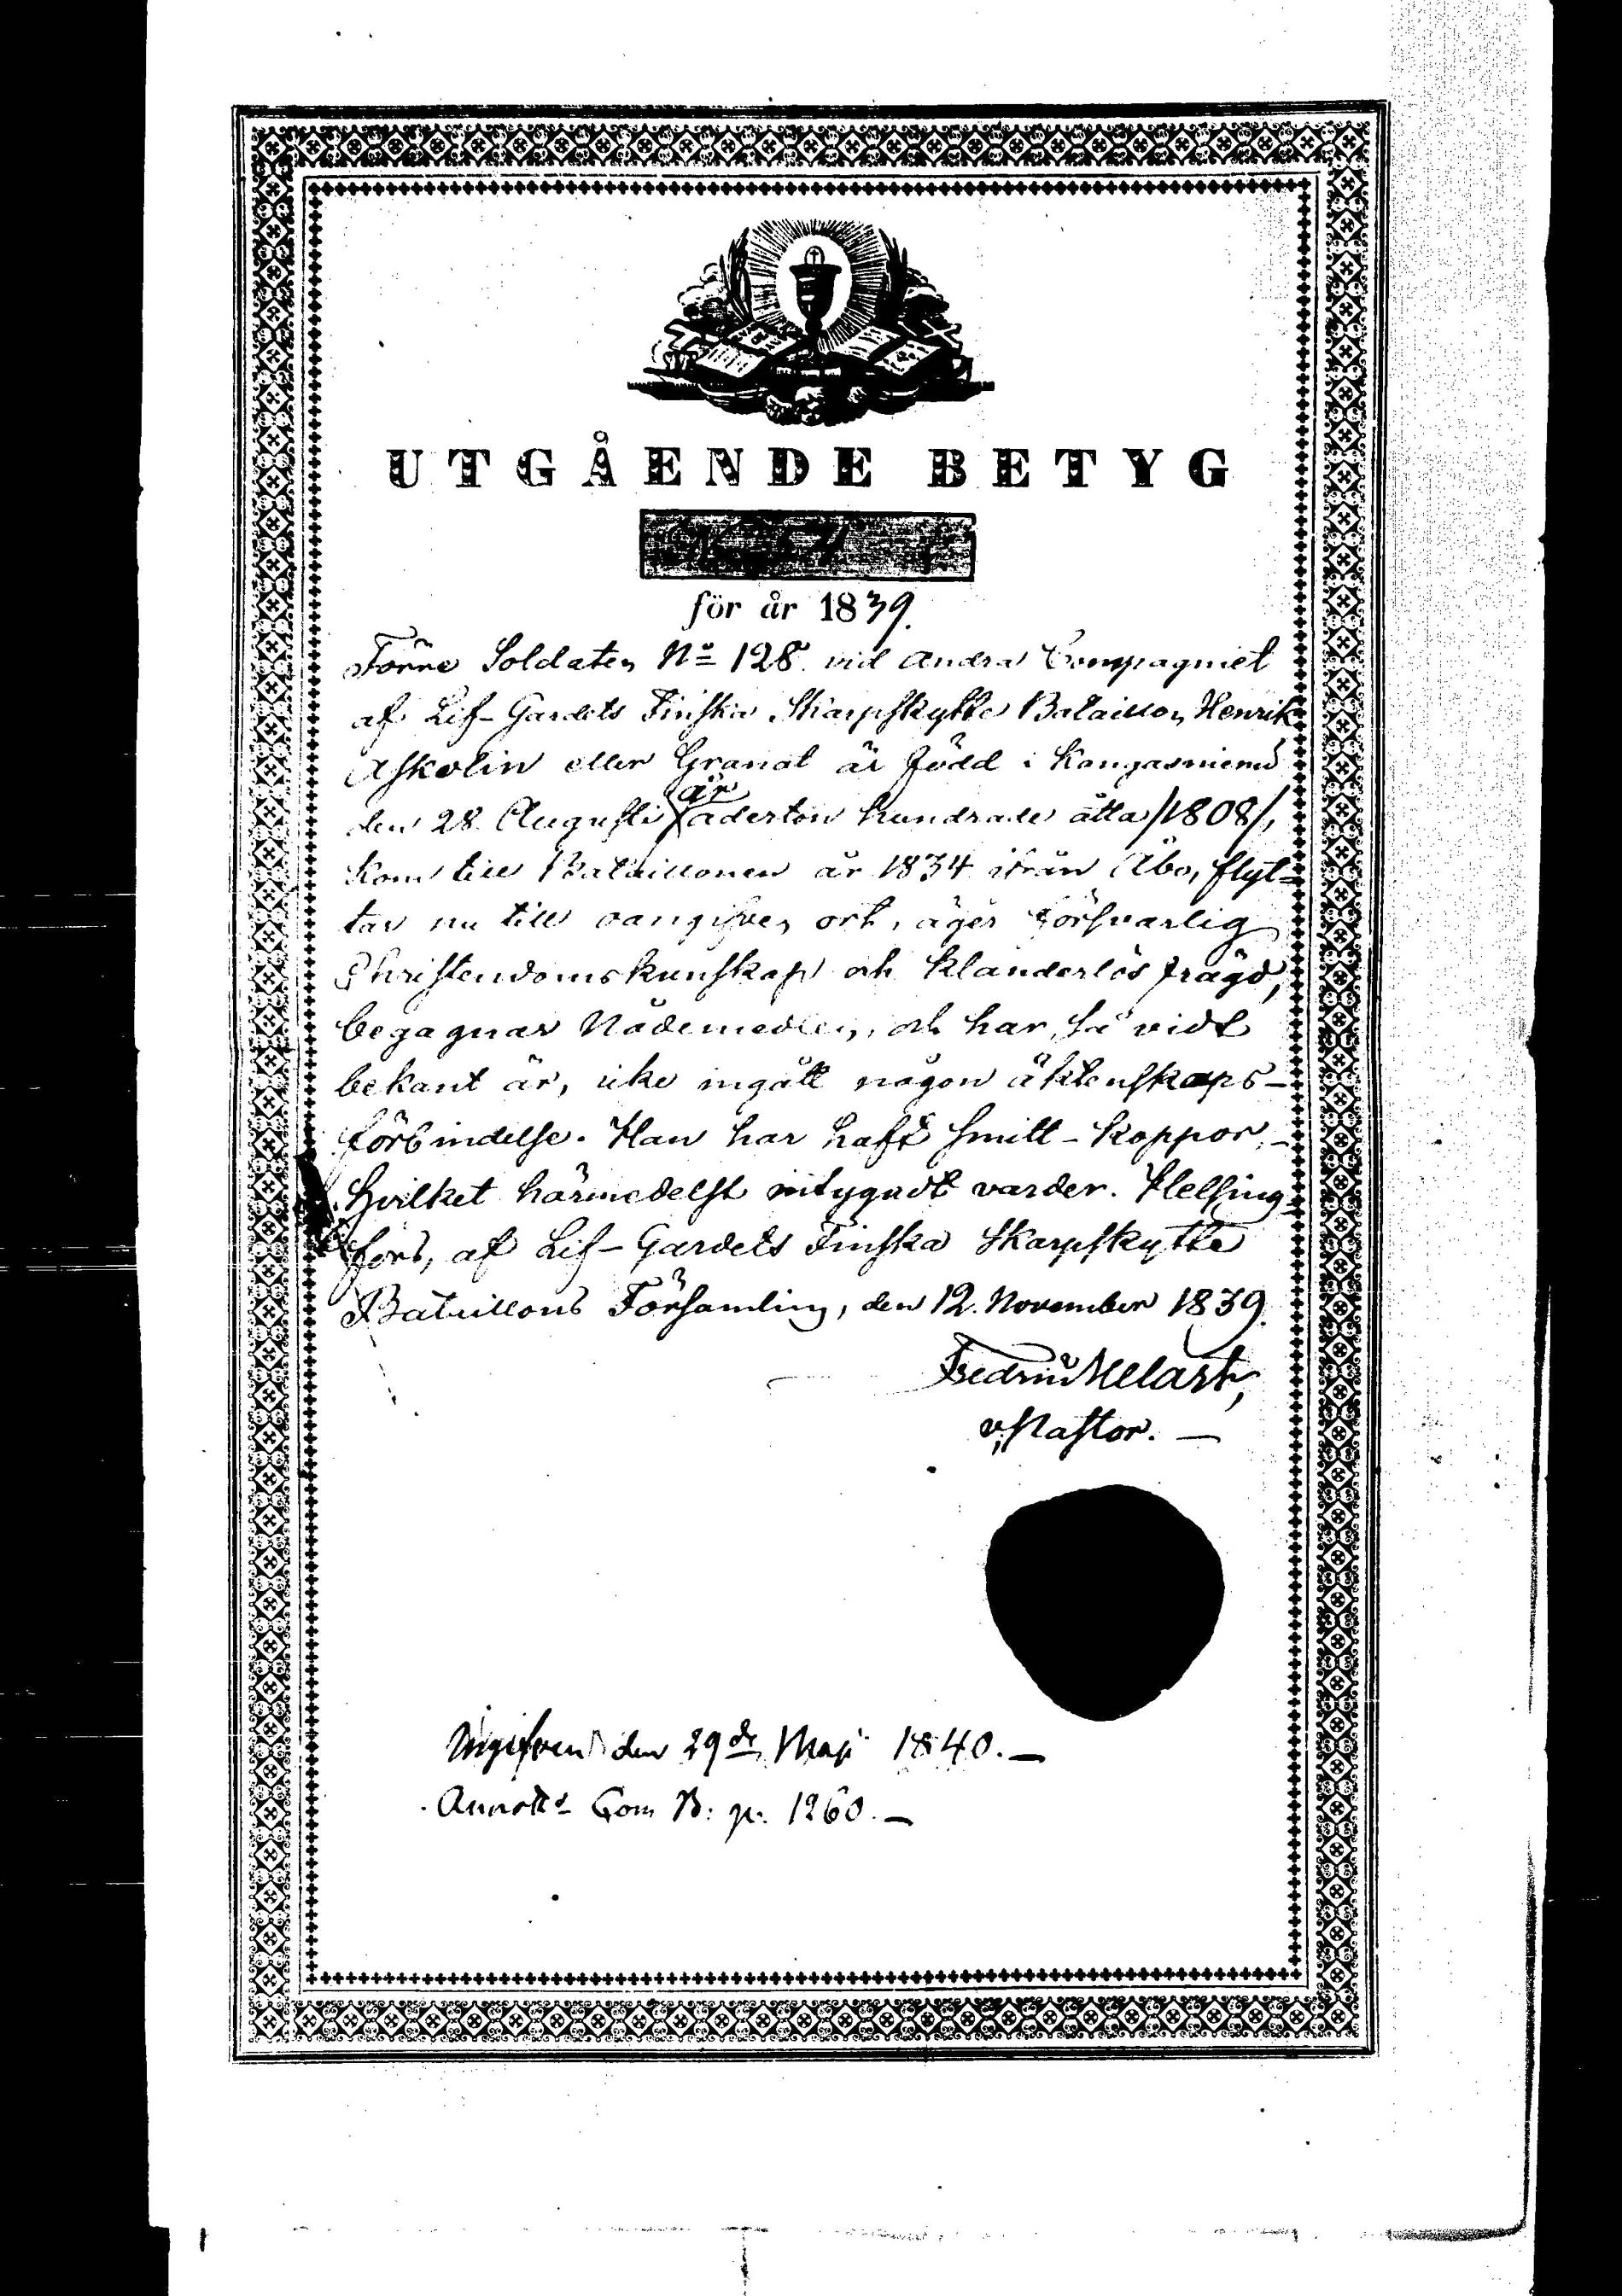 UTGÅENDE BETYG
för år 1839.
Förre Soldaten No 128 vid Andra Compagniet
af Lif-Gardets Finska Skarpskytte Bataillon, Henrik
Askolin eller Granat är född i Kangasniemi
år
den 28 Augusti Aderton hundrade åtta /1808/,
kom till Bataillonen år 1834 ifrån Åbo, flyt-
tar nu till oangifven ort, äger försvarlig
Christendomskunskap och klanderlös frägd,
begagnar Nådemedlen, och har, så vidt
bekant är, icke ingått någon äktenskaps-
förbindelse. Han har haft smitt-koppor. -
Hvilket härmedelst intygadt varder. Helsing-
fors, af Lif-Gardets Finska Skarpskytte
Bataillons Församling, den 12. November 1839.
Fredric Melart,
v. Pastor. —
Ingifven den 29de Maji 1840. —
Com B: p. 1260. —